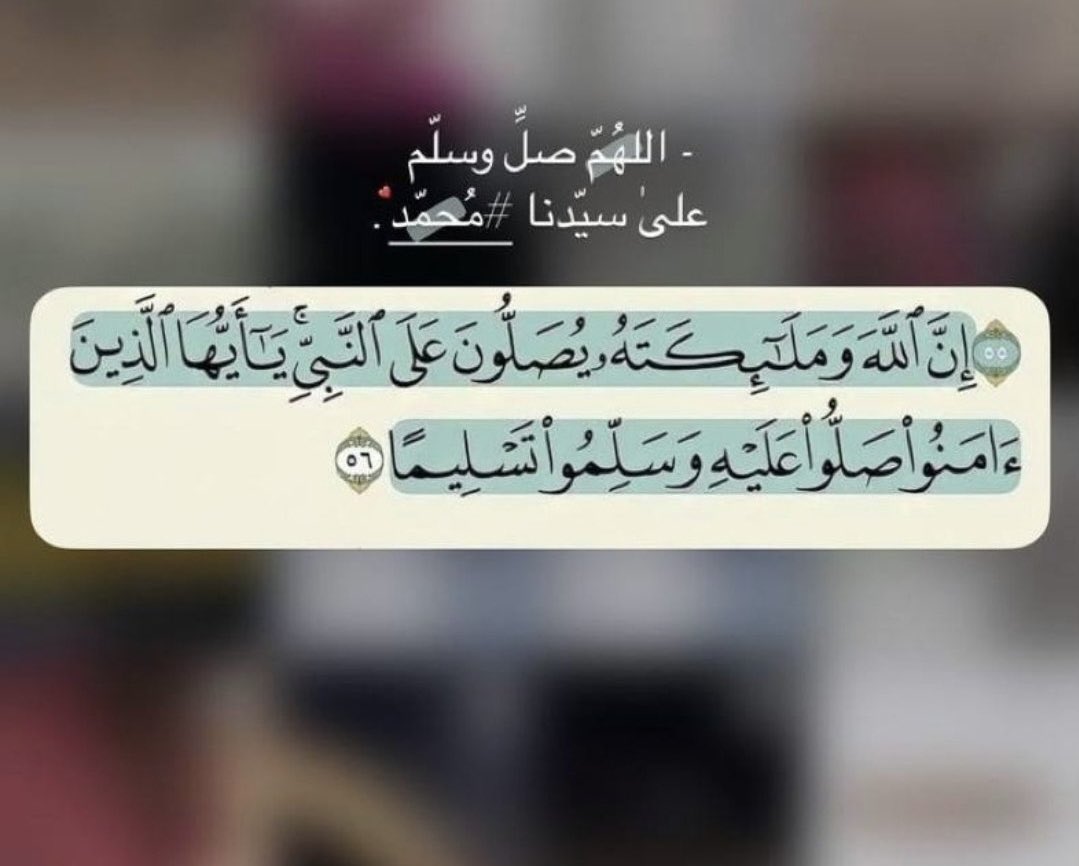 - اللهُمّ صلِّ وسلّم
علىٰ سيّدنا #مُحمّد.
٥٥ إِنَّ ٱللَّهَ وَمَلَٰٓئِكَتَهُۥ يُصَلُّونَ عَلَى ٱلنَّبِيِّۚ يَٰٓأَيُّهَا ٱلَّذِينَ
ءَامَنُوا۟ صَلُّوا۟ عَلَيْهِ وَسَلِّمُوا۟ تَسْلِيمًا ٥٦